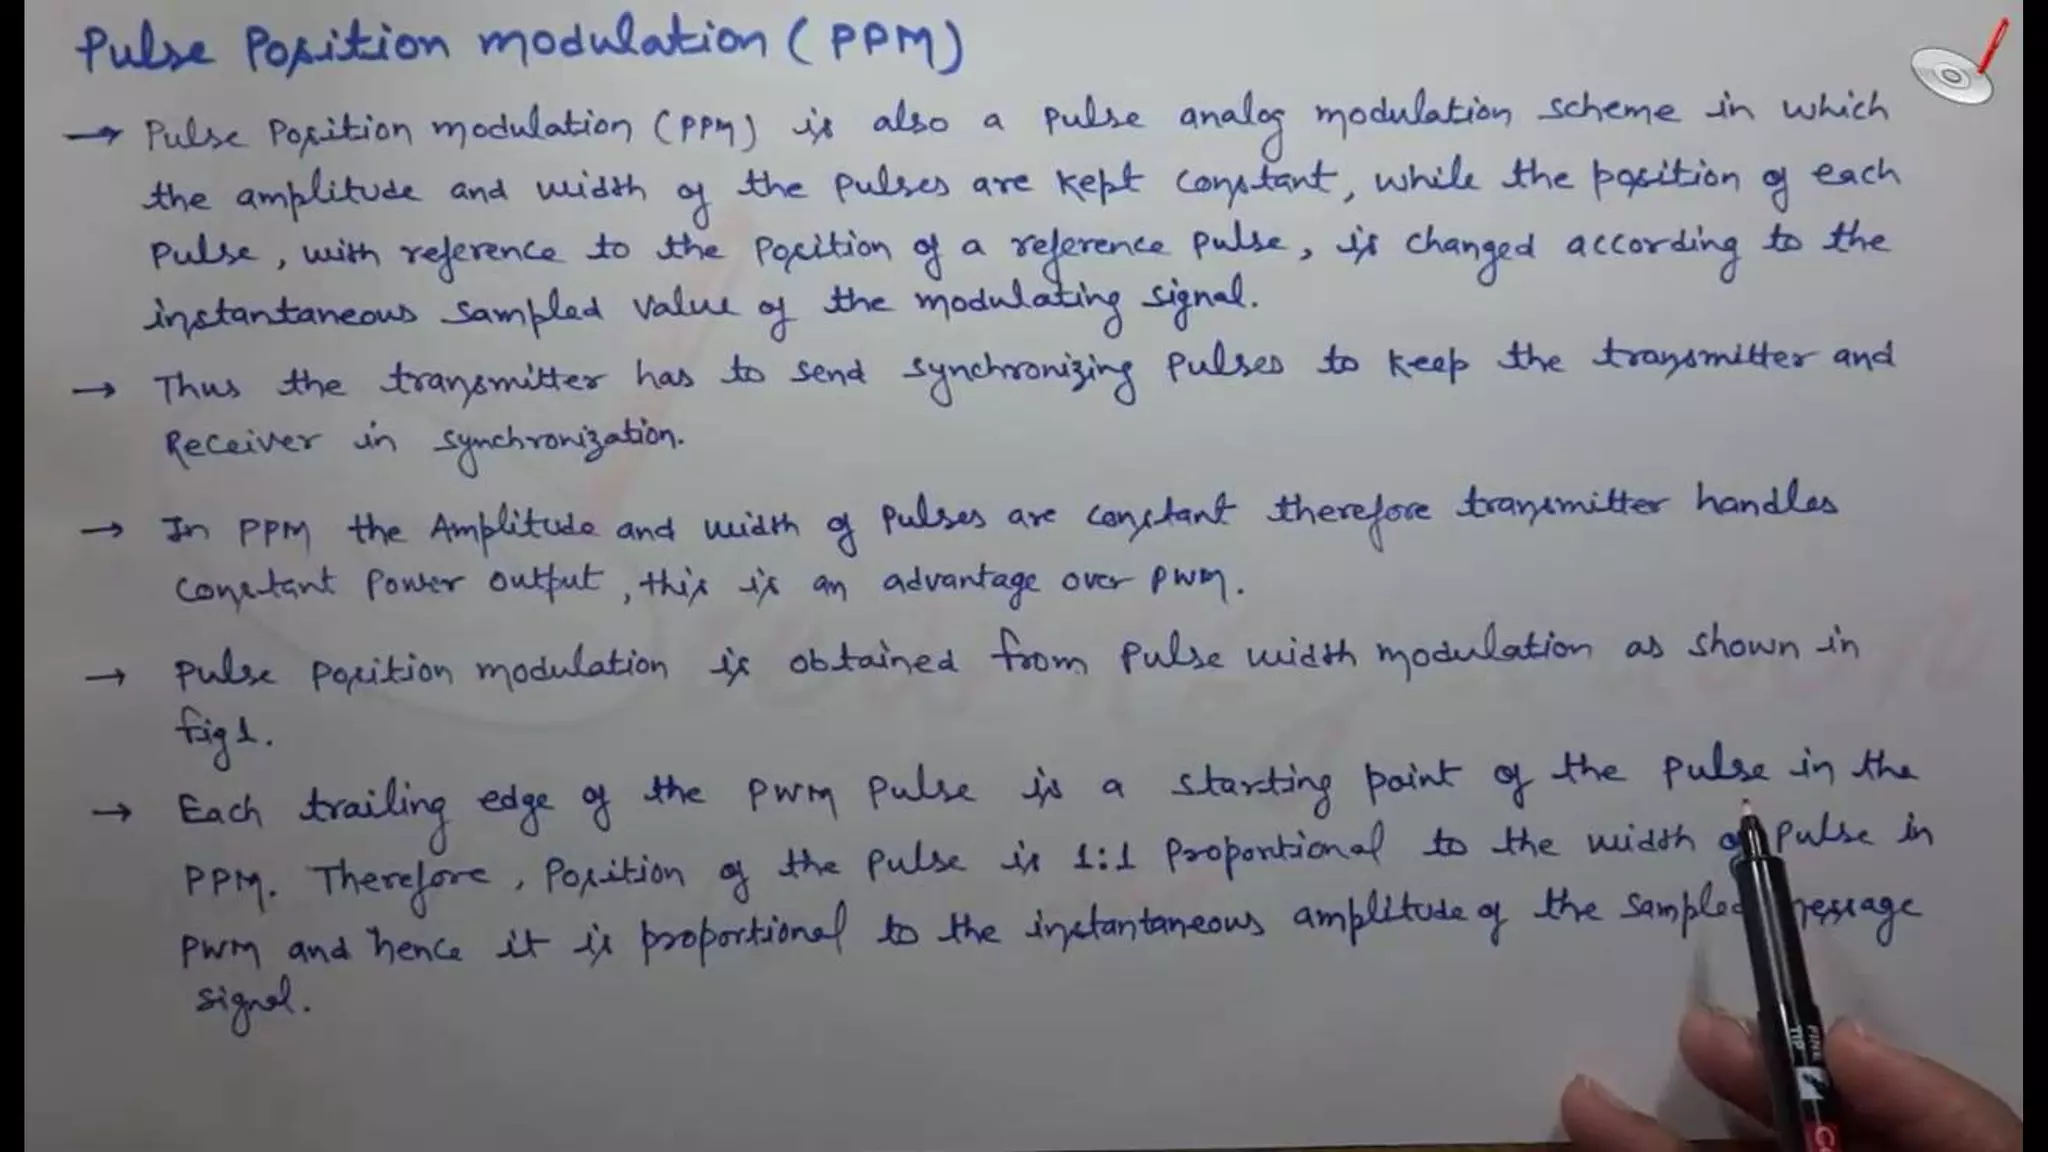 Pulse Position modulation (PPM)
→ Pulse Position modulation (PPM) is also a pulse analog modulation scheme in which
the amplitude and width of the pulses are kept constant, while the position of each
pulse, with reference to the position of a reference pulse, is changed according to the
instantaneous sampled value of the modulating signal.
→ Thus the transmitter has to send synchronizing pulses to keep the transmitter and
Receiver in synchronization.
→ In PPM the Amplitude and width of pulses are constant therefore transmitter handles
constant power output, this is an advantage over PWM.
→ Pulse position modulation is obtained from Pulse width modulation as shown in
fig 1.
→ Each trailing edge of the PWM pulse is a starting point of the pulse in the
PPM. Therefore, Position of the pulse is 1:1 Proportional to the width of pulse in
PWM and hence it is proportional to the instantaneous amplitude of the sampled message
signal.
FINE
TIP